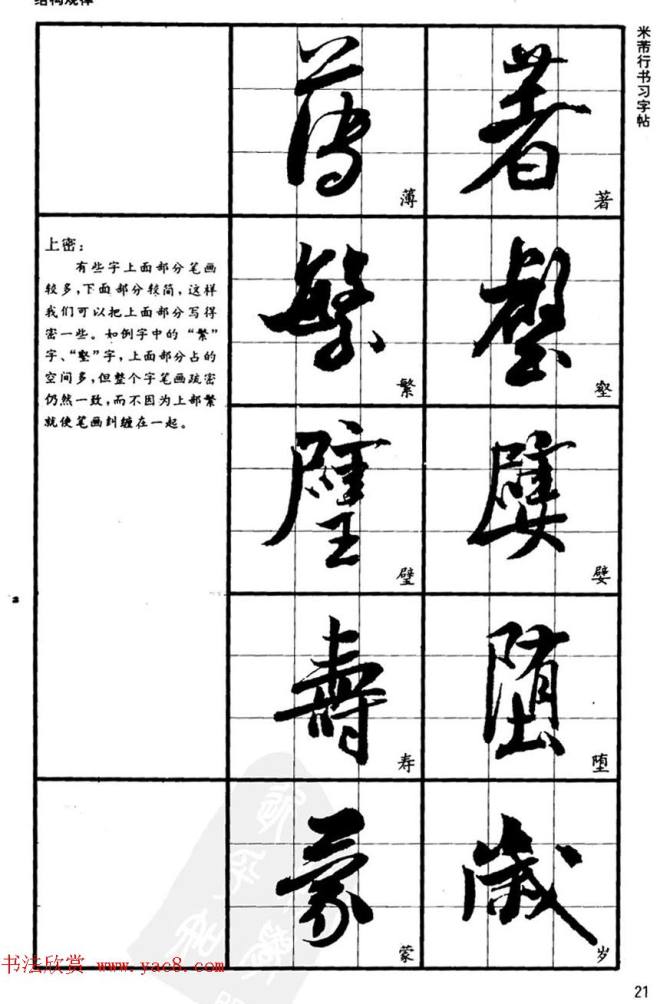 结构规律
米芾行书习字帖
著
薄
上密：
有些字上面部分笔画
较多，下面部分较简，这样
我们可以把上面部分写得
密一些。如例字中的“繁”
字、“壑”字，上面部分占的
空间多，但整个字笔画疏密
仍然一致，而不因为上部繁
就使笔画纠缠在一起。
壑
繁
嬖
璧
堕
寿
岁
蒙
书法欣赏 www.yac8.com
21